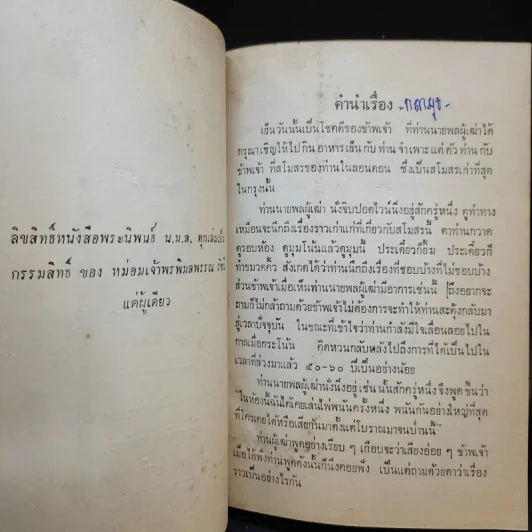 ลิขสิทธิ์หนังสือพระนิพนธ์ น.ม.ส. ทุกเล่มเป็น
กรรมสิทธิ์ ของ หม่อมเจ้าพรพิมลพรรณ รัชนี
แต่ผู้เดียว
คำนำเรื่อง
เย็นวันนั้นเป็นโชคดีของข้าพเจ้า ที่ท่านนายพลผู้เฒ่าได้
กรุณาเชิญให้ไปกินอาหารเย็นกับท่าน จำเพาะแต่ตัวท่านกับ
ข้าพเจ้า ที่สโมสรของท่านในลอนดอน ซึ่งเป็นสโมสรเก่าที่สุด
ในกรุงนั้น
ท่านนายพลผู้เฒ่า นั่งจิบปอตไวน์นิ่งอยู่สักครู่หนึ่ง ดูทำทาง
เหมือนจะนึกถึงเรื่องราวเก่าแก่ที่เกี่ยวกับสโมสรนั้น ตาท่านกวาด
ดูรอบห้อง ดูมุมโน้นแล้วดูมุมนี้ ประเดี๋ยวก็ยิ้ม ประเดี๋ยวก็
ทำขมวดคิ้ว สังเกตได้ว่าท่านนึกถึงเรื่องที่ชอบบ้างที่ไม่ชอบบ้าง
ส่วนข้าพเจ้าเมื่อเห็นท่านนายพลผู้เฒ่ามีอาการเช่นนี้ ถึงอยากจะ
ถามก็ไม่กล้าถามด้วยข้าพเจ้าไม่ต้องการจะทำให้ท่านสะดุ้งกลับมา
สู่เวลาปัจจุบัน ในขณะที่เข้าใจว่าท่านกำลังมีใจเลื่อนลอยไปใน
กาลเมื่อกระโน้น คิดหวนกลับหลังไปถึงการที่ได้เป็นไปใน
เวลาที่ล่วงมาแล้ว ๕๐-๖๐ ปีเป็นอย่างน้อย
ท่านนายพลผู้เฒ่านั่งนิ่งอยู่เช่นนั้นสักครู่หนึ่งจึงพูดขึ้นว่า
"ในห้องนี้ฉันได้เคยเล่นไพ่พนันครั้งหนึ่ง พนันกันอย่างใหญ่ที่สุด
ที่ใครเคยได้หรือเสียกันมาตั้งแต่โบราณมาจนบ่านนี้"
ท่านผู้เฒ่าพูดอย่างเรียบ ๆ เกือบจะว่าเสียงอ่อย ๆ ข้าพเจ้า
เมื่อได้ฟังท่านพูดดังนั้นก็นิ่งคอยฟัง เป็นแต่ถามด้วยตาว่าเรื่อง
ราวเป็นอย่างไรกัน